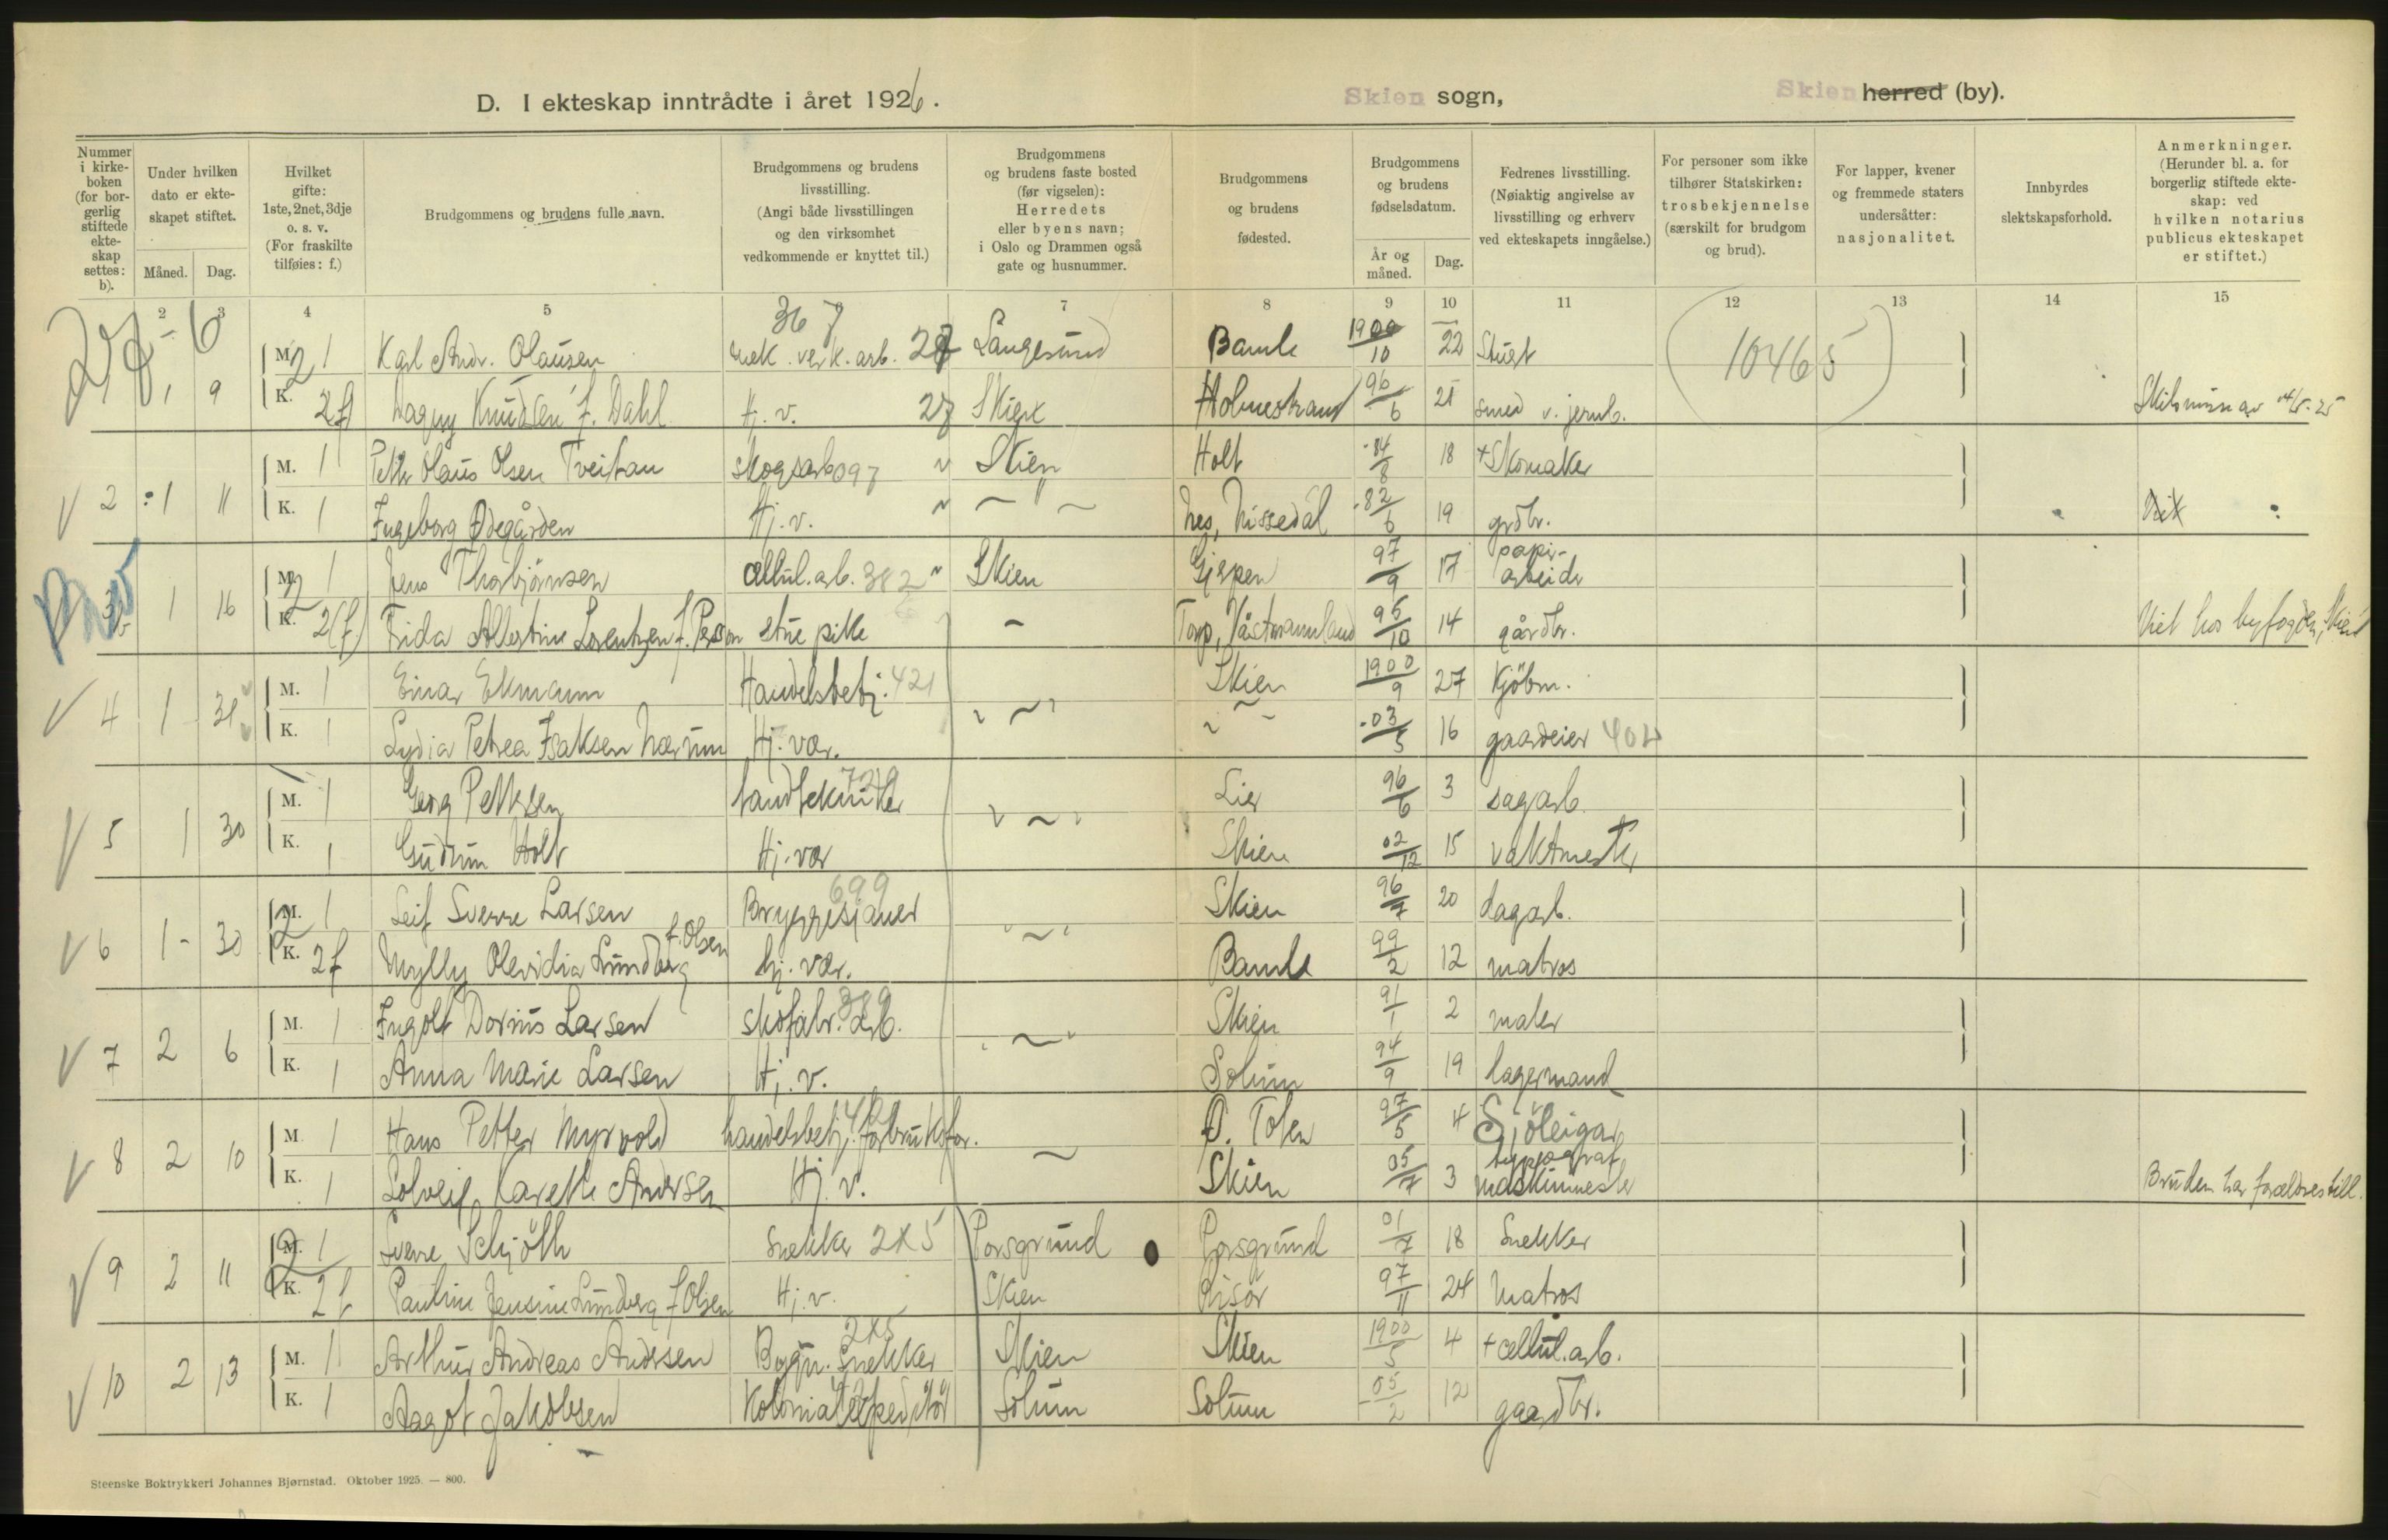 D. I ekteskap inntrådte i året 1926.
Skien sogn,
Skien herred (by).
Nummer i kirkeboken (for borgerlig stiftede ekteskap settes: b).
Under hvilken dato er ekteskapet stiftet.
Måned. Dag.
Hvilket gifte: 1ste, 2net, 3dje o. s. v. (For fraskilte tilføies: f.)
Brudgommens og brudens fulle navn.
Brudgommens og brudens livsstilling. (Angi både livsstillingen og den virksomhet vedkommende er knyttet til.)
Brudgommens og brudens faste bosted (før vigselen): Herredets eller byens navn; i Oslo og Drammen også gate og husnummer.
Brudgommens og brudens fødested.
Brudgommens og brudens fødselsdatum.
År og måned. Dag.
Fedrenes livsstilling. (Nøiaktig angivelse av livsstilling og erhverv ved ekteskapets inngåelse.)
For personer som ikke tilhører Statskirken: trosbekjennelse (særskilt for brudgom og brud).
For lapper, kvener og fremmede staters undersåtter: nasjonalitet.
Innbyrdes slektskapsforhold.
Anmerkninger. (Herunder bl. a. for borgerlig stiftede ekteskap: ved hvilken notarius publicus ekteskapet er stiftet.)
2 3 4 5 7 8 9 10 11 12 13 14 15
10465
M. 1 Karl Andr. Olausen mek. verk. arb. Langesund Bamle 1900/10 22
1 9 K. 2f Dagny Knudsen f. Dahl Hj. v. Skien Holmestrand 96/6 21 smed v. jernb.
M. 1 Petter Olaus Olsen Tveitan skogsarb Skien Holt 84/8 18 + Skomaker
2 1 11 K. 1 Ingeborg Ødegården Hj. v. — " — Nes, Nissedal 82/6 19 grdbr.
M. 1 Jens Thorbjörnsen cellul. arb. 382 Skien Gjerpen 97/9 17 papirarbeider
3 1 16 K. 2(f) Frida Albertine Lorentzen f. Persson Torp, Västmannland 95/10 14 gårdbr. Viet hos byfogden, Skien
M. 1 Einar Ekmann Handelsbetj. 421 Skien 1900/9 27 Kjöbm.
4 1 31 K. 1 Lydia Petrea Isaksen Nærum Hj. vær. 03/5 16 gaardeier
M. 1 Georg Pettersen tandtekniker Lier 96/6 3 sagarb.
5 1 30 K. 1 Gudrun Holt Hj. vær Skien 02/12 15 vaktmester
M. 1 Leif Sverre Larsen Bryggesjauer 699 Skien 96/7 20 dagarb.
6 1 - 30 K. 2f Mylly Olevidia Lundberg f. Olsen hj. vær. Bamle 99/2 12 matros
M. 1 Ingolf Dorius Larsen skofabr. arb. 389 Skien 91/1 2 maler
7 2 6 K. 1 Anna Marie Larsen Hj. v. Solum 94/9 19 lagermand
M. 1 Hans Petter Myrvold handelsbetj. forbruksfor. Ø. Toten 97/5 4
8 2 10 K. 1 Solveig Karethe Andersen Hj. v. Skien 05/7 3 typograf maskinmester Bruden har forældres till.
M. 1 Sverre Schjöth Snekker 2x5 Porsgrund Porsgrund 01/7 18 Snekker
9 2 11 K. 2f Pauline Jensine Lundberg f Olsen Hj. v. Skien Risör 97/11 24 Matros
M. 1 Arthur Andreas Andersen Bygn. Snekker 2x5 Skien Skien 1900/5 4 + cellul. arb.
10 2 13 K. 1 Aagot Jakobsen Kolonial Solum Solum 05/2 12 gaardbr.
Steenske Boktrykkeri Johannes Bjørnstad. Oktober 1925. — 800.